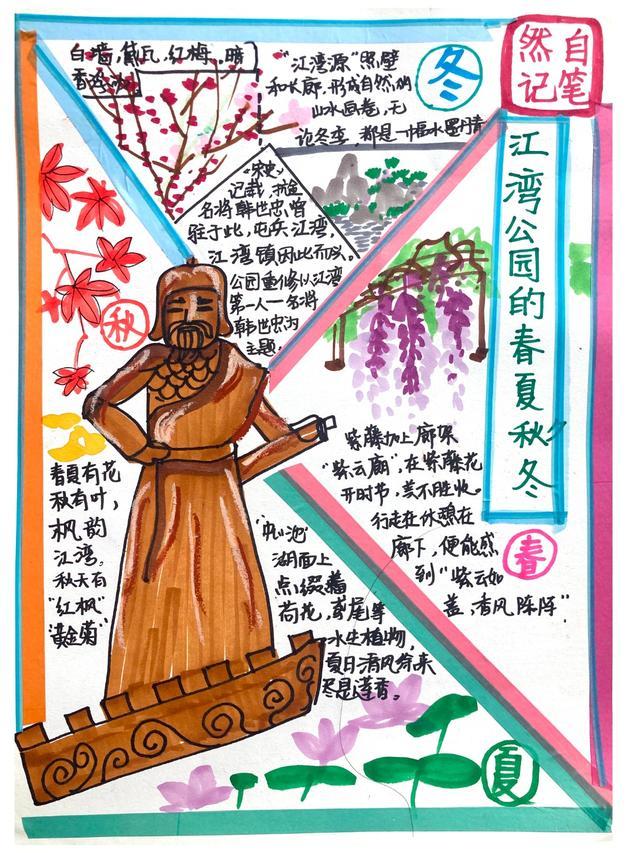 自然笔记
江湾公园的春夏秋冬
冬
白墙,黛瓦,红梅,暗
香
"江湾源"照壁
和长廊,形成自然的
山水画卷,无
论冬变,都是一幅水墨丹青
《宋史》
记载,抗金
名将韩世忠曾
驻于此,屯兵江湾,
江湾镇因此而以。
公园重修以江湾
第一人一名将
韩世忠为
主题。
秋
春夏有花
秋有叶,
枫韵
江湾。
秋天有
"红枫"
"黄金菊"
春
紫藤加上廊架
"紫云廊",在紫藤花
开时节,美不胜收。
行走在休憩在
廊下,便能感
到"紫云如
盖,清风阵阵"。
夏
湖面上
点缀着
荷花,鸢尾等
水生植物,
夏日清风荷来
尽是莲香。